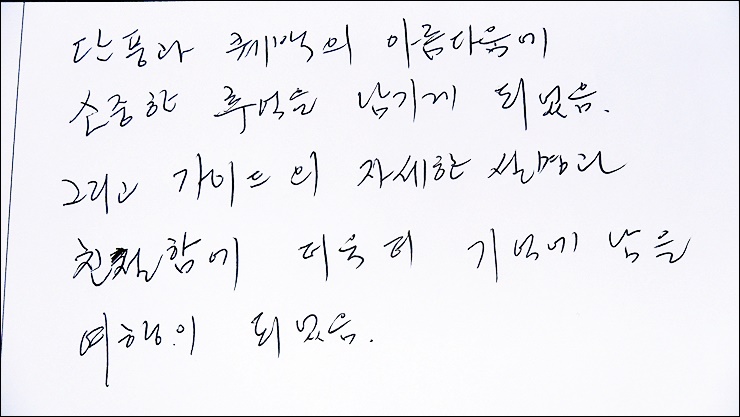 단풍과 퀘백의 아름다움에
소중한 추억을 남기게 되었음.
그리고 가이드의 자세한 설명과
친절함에 더욱더 기억에 남을
여행이 되었음.